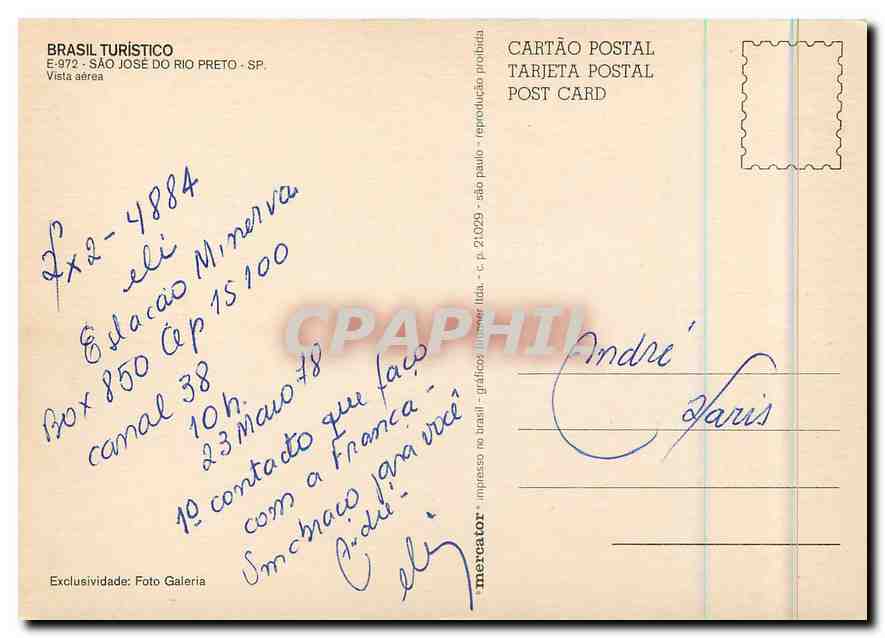 BRASIL TURÍSTICO
E-972 - SÃO JOSÉ DO RIO PRETO - SP.
Vista aérea
CARTÃO POSTAL
TARJETA POSTAL
POST CARD
Px2-4884
eli
Estação Minerva
Box 850 Cep 15100
canal 38
10h.
23 Maio 78
1º contacto que faço
com a França -
Um abraço para você
André -
eli
André
Paris
mercator impresso no brasil - gráficos brunner ltda. - c. p. 21.029 - são paulo - reprodução proibida
Exclusividade: Foto Galeria
CPAPHIL